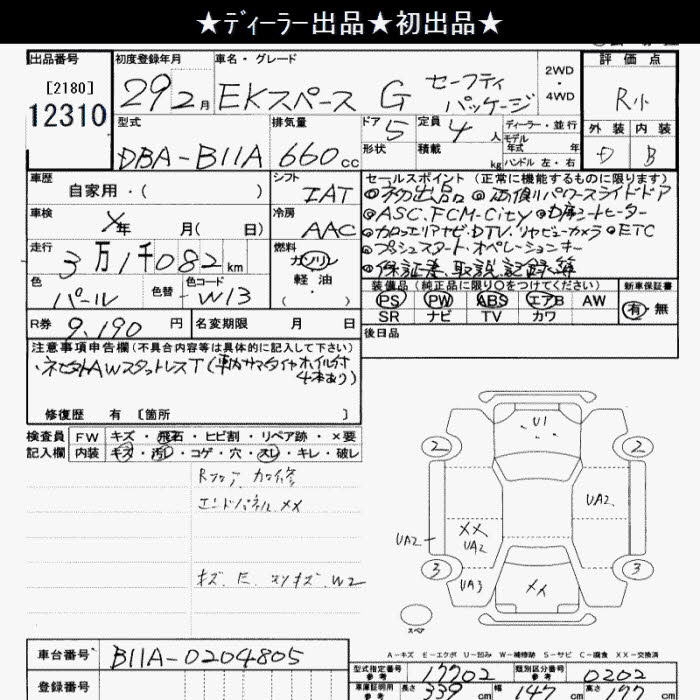 ★ディーラー出品★初出品★
出品番号
[2180]
12310
初度登録年月
29年2月
車名・グレード
EKスペース G セーフティパッケージ
2WD
・
4WD
評価点
R小
外装 内装
D B
型式
DBA-B11A
排気量
660cc
ドア
5
定員
4人
形状
積載
kg
ディーラー・並行
モデル年式 年
ハンドル 左・右
車歴
自家用・( )
シフト
IAT
車検
X年 月( 日)
冷房
AAC
走行
3万1千082km
燃料
ガソリン
軽・油
( )
色
パール
色替
色コード
W13
R券
9,190円
名変期限 月 日
セールスポイント(正常に機能するものに限ります)
◎初出品 ◎両側パワースライドドア
◎ASC.FCM-City ◎D席シートヒーター
◎カロッツェリアナビ.DTV.リヤビューカメラ ◎ETC
◎プッシュスタート・オペレーションキー
◎保証書.取説.記録簿
装備品(純正品に限り○をつけてください)
新車保証書
PS PW ABS エアB AW
SR ナビ TV カワ
有・無
後日品
注意事項申告欄(不具合内容等は具体的に記入して下さい)
4本あり)
修復歴 有 [箇所
検査員記入欄
FW キズ・飛石・ヒビ割・リペア跡・×要
内装 キズ・汚レ・コゲ・穴・スレ・キレ・破レ
Rフロア 加修
エンドパネル XX
キズ. E. スリキズ. W2
U1
2
2
UA2
XX
UA2
UA2
3
3
UA3
XX
スペア
A-キズ E-エクボ U-凹み W-補修跡 S-サビ C-腐食 XX-交換済
車台番号
B11A-0204805
登録番号
型式指定番号
参考
17702
類別区分番号
参考
0202
車庫証明用
参考
長さ 339cm 幅 147cm 高さ 177cm